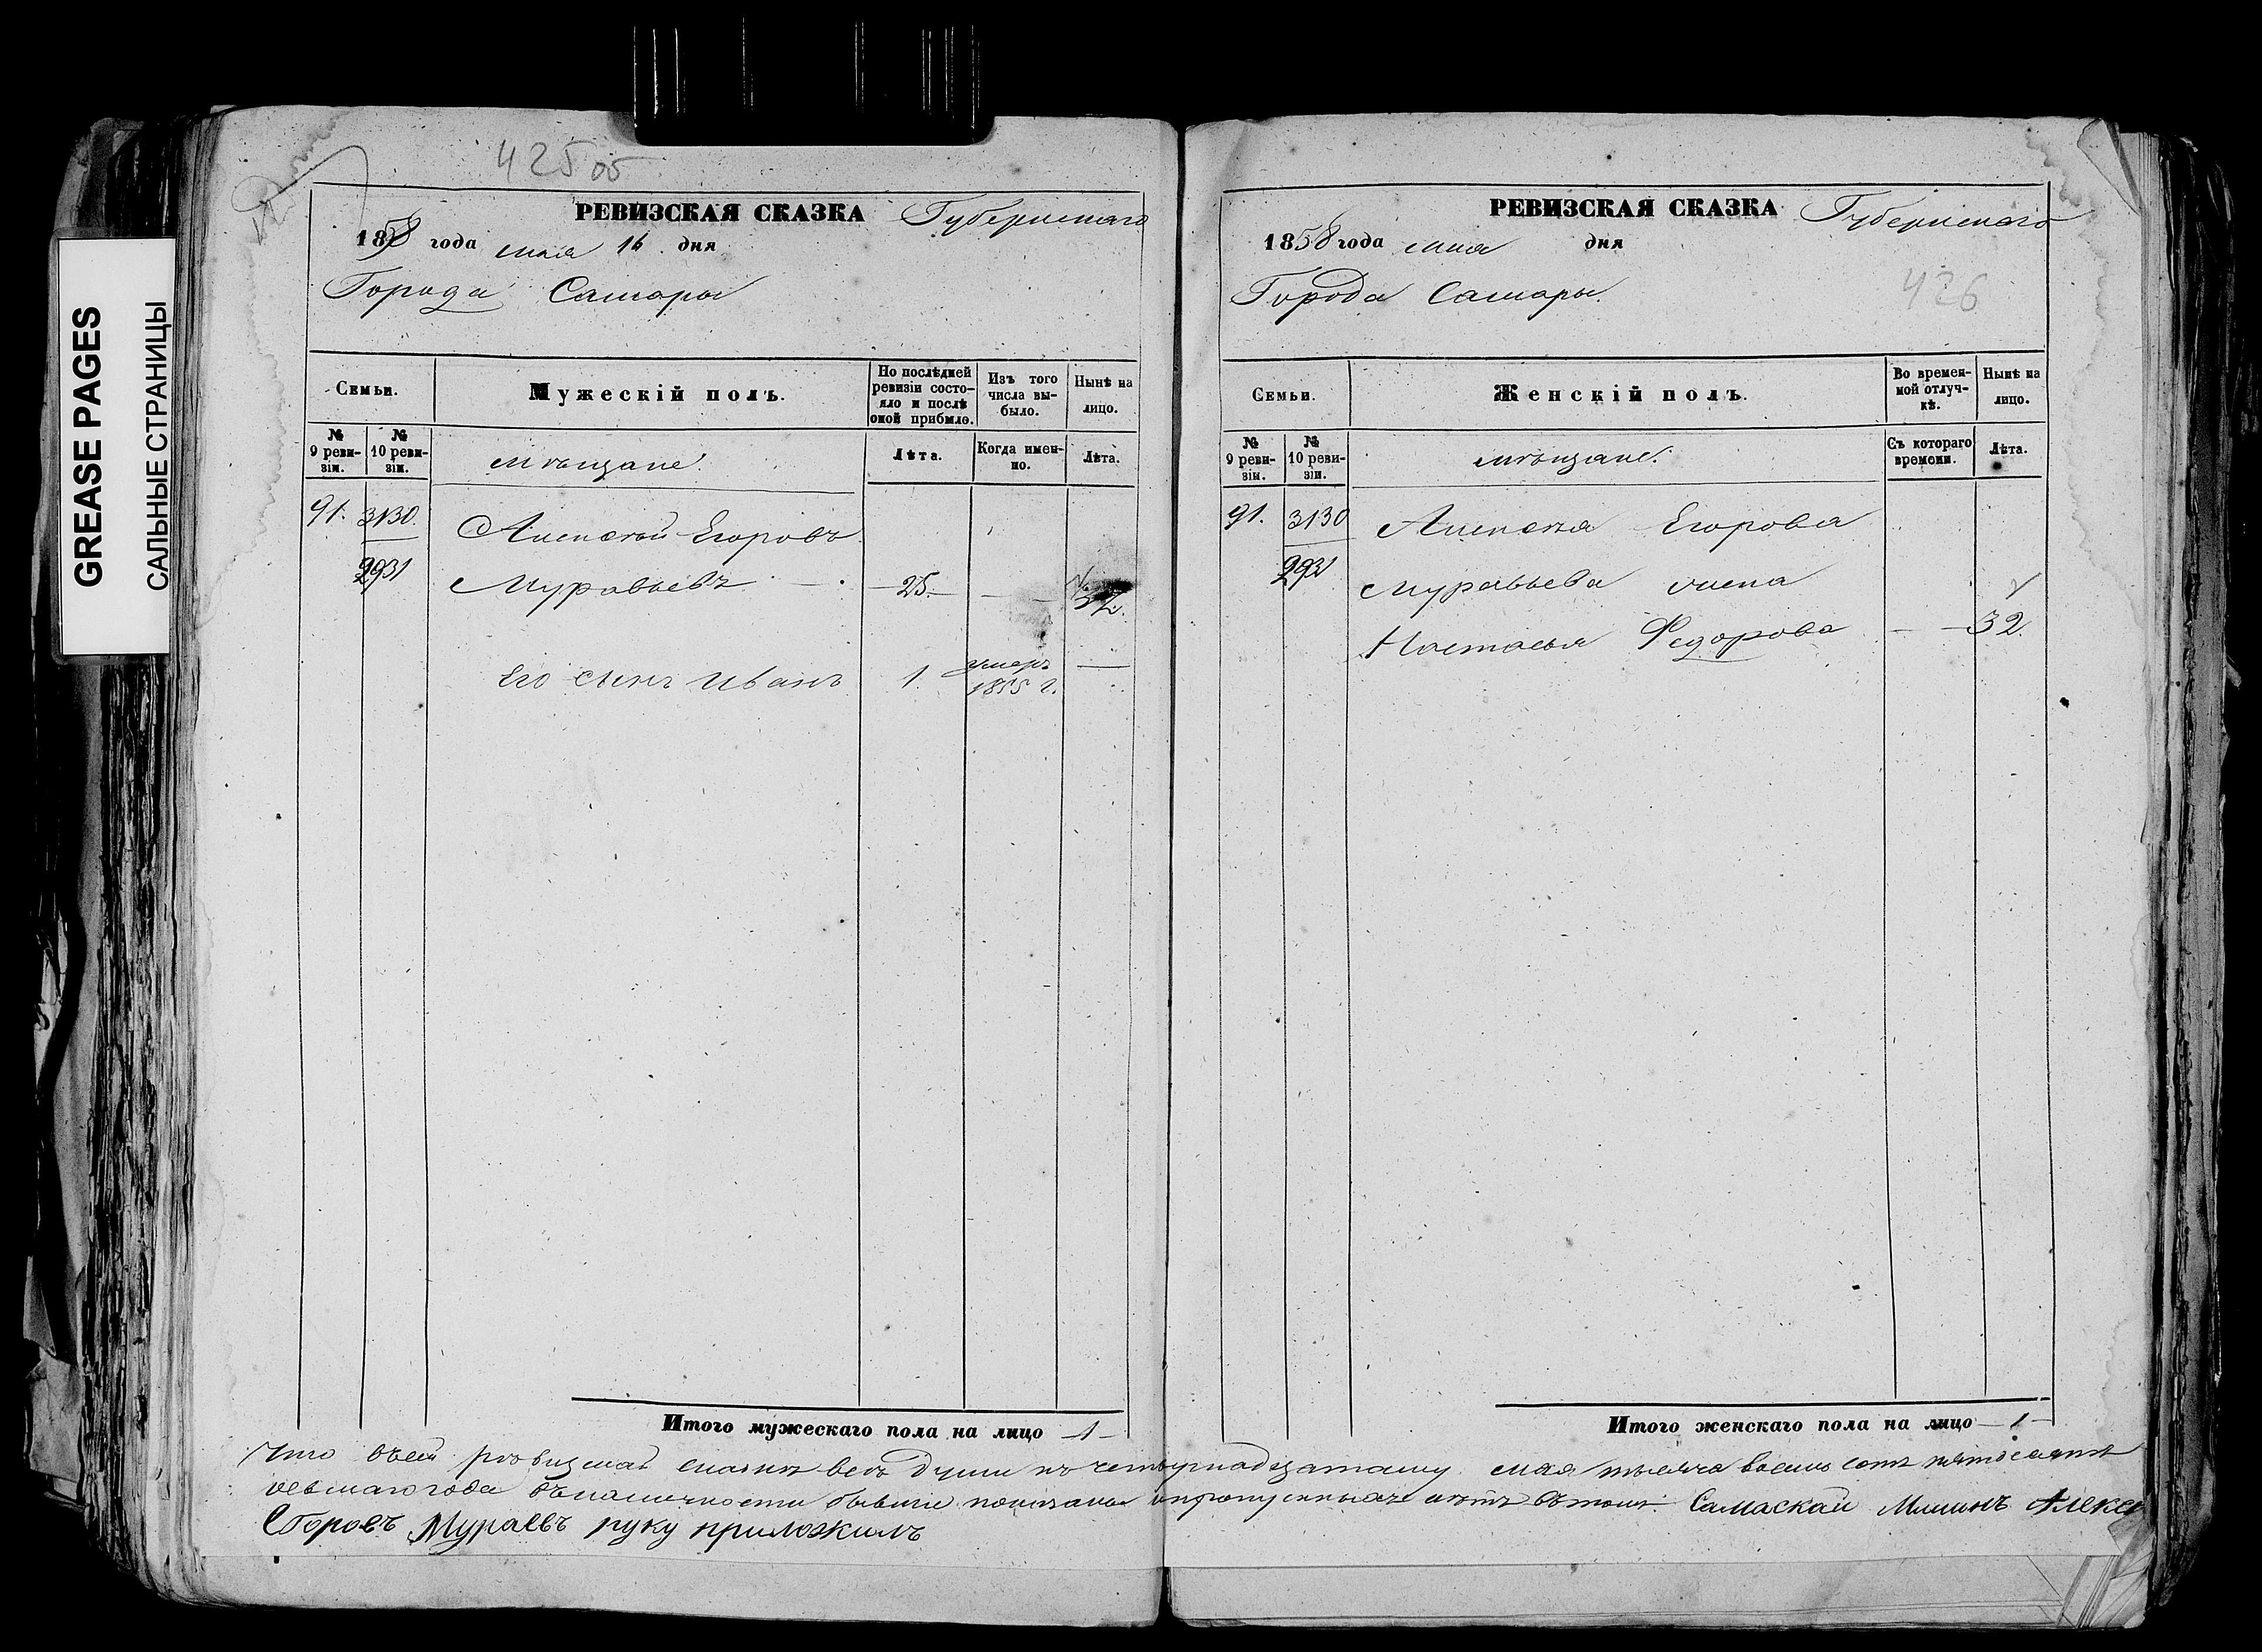 GREASE PAGES
САЛЬНЫЕ СТРАНИЦЫ
425 об
РЕВИЗСКАЯ СКАЗКА Губернскаго
1858 года мая 16 дня
Города Самары
Семьи.
Мужескій полъ.
По послѣдней ревизіи состо-
яло и послѣ
оной прибыло.
Изъ того
числа вы-
было.
Нынѣ на
лицо.
№
9 реви-
зіи.
№
10 реви-
зіи.
мѣщане.
Лѣта.
Когда имен-
но.
Лѣта.
91. 3130. Алексѣй Егоровъ
2931 Муравьевъ 25. 32.
Его сынъ Иванъ 1. умеръ
1855 г.
Итого мужескаго пола на лицо 1
РЕВИЗСКАЯ СКАЗКА Губернскаго
1858 года мая дня
Города Самары.
426
Семьи.
Женскій полъ.
Во времен-
ной отлуч-
кѣ.
Нынѣ на
лицо.
№
9 реви-
зіи.
№
10 реви-
зіи.
мѣщане.
Съ котораго
времени.
Лѣта.
91. 3130 Алексѣя Егорова
2931 Муравьева жена
Настасья Федорова 32.
Итого женскаго пола на лицо 1
Что всей ревизской сказке всѣ души къ четырнадцатому мая тысяча восемь сотъ пятьдесятъ
осьмаго года въ наличности бывшіе показаны и пропущенныхъ нѣтъ вътомъ Самаскай Мшинъ Алексе
Егоровъ Мураевъ руку приложилъ